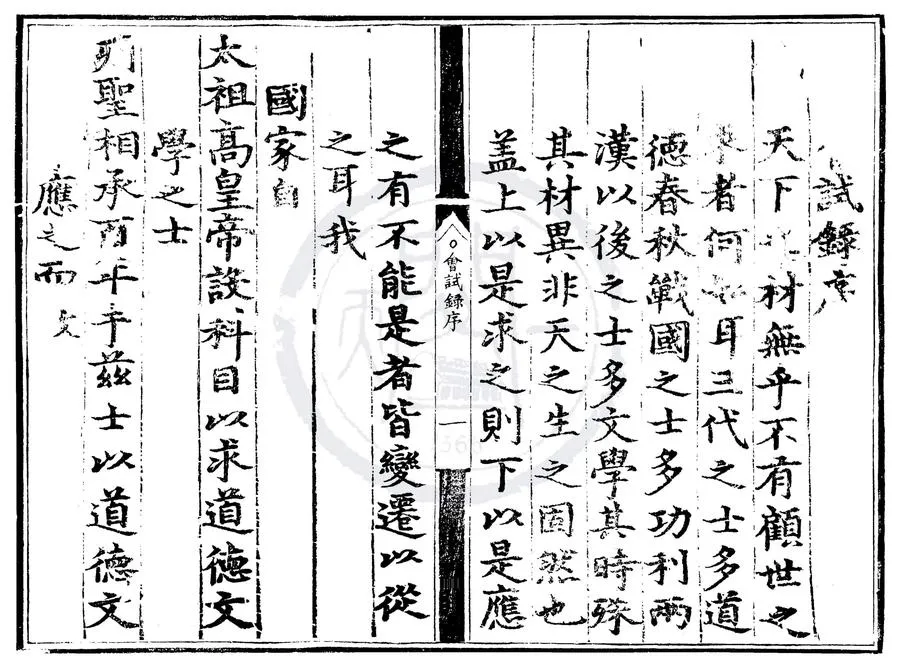 試錄序
天下之材無乎不有顧世之
者何如耳三代之士多道
德春秋戰國之士多功利兩
漢以後之士多文學其時殊
其材異非天之生之固然也
盖上以是求之則下以是應
會試錄序 一
之有不能是者皆變遷以從
之耳我
國家自
太祖高皇帝設科目以求道德文
學之士
列聖相承百年于茲士以道德文
應之而 文